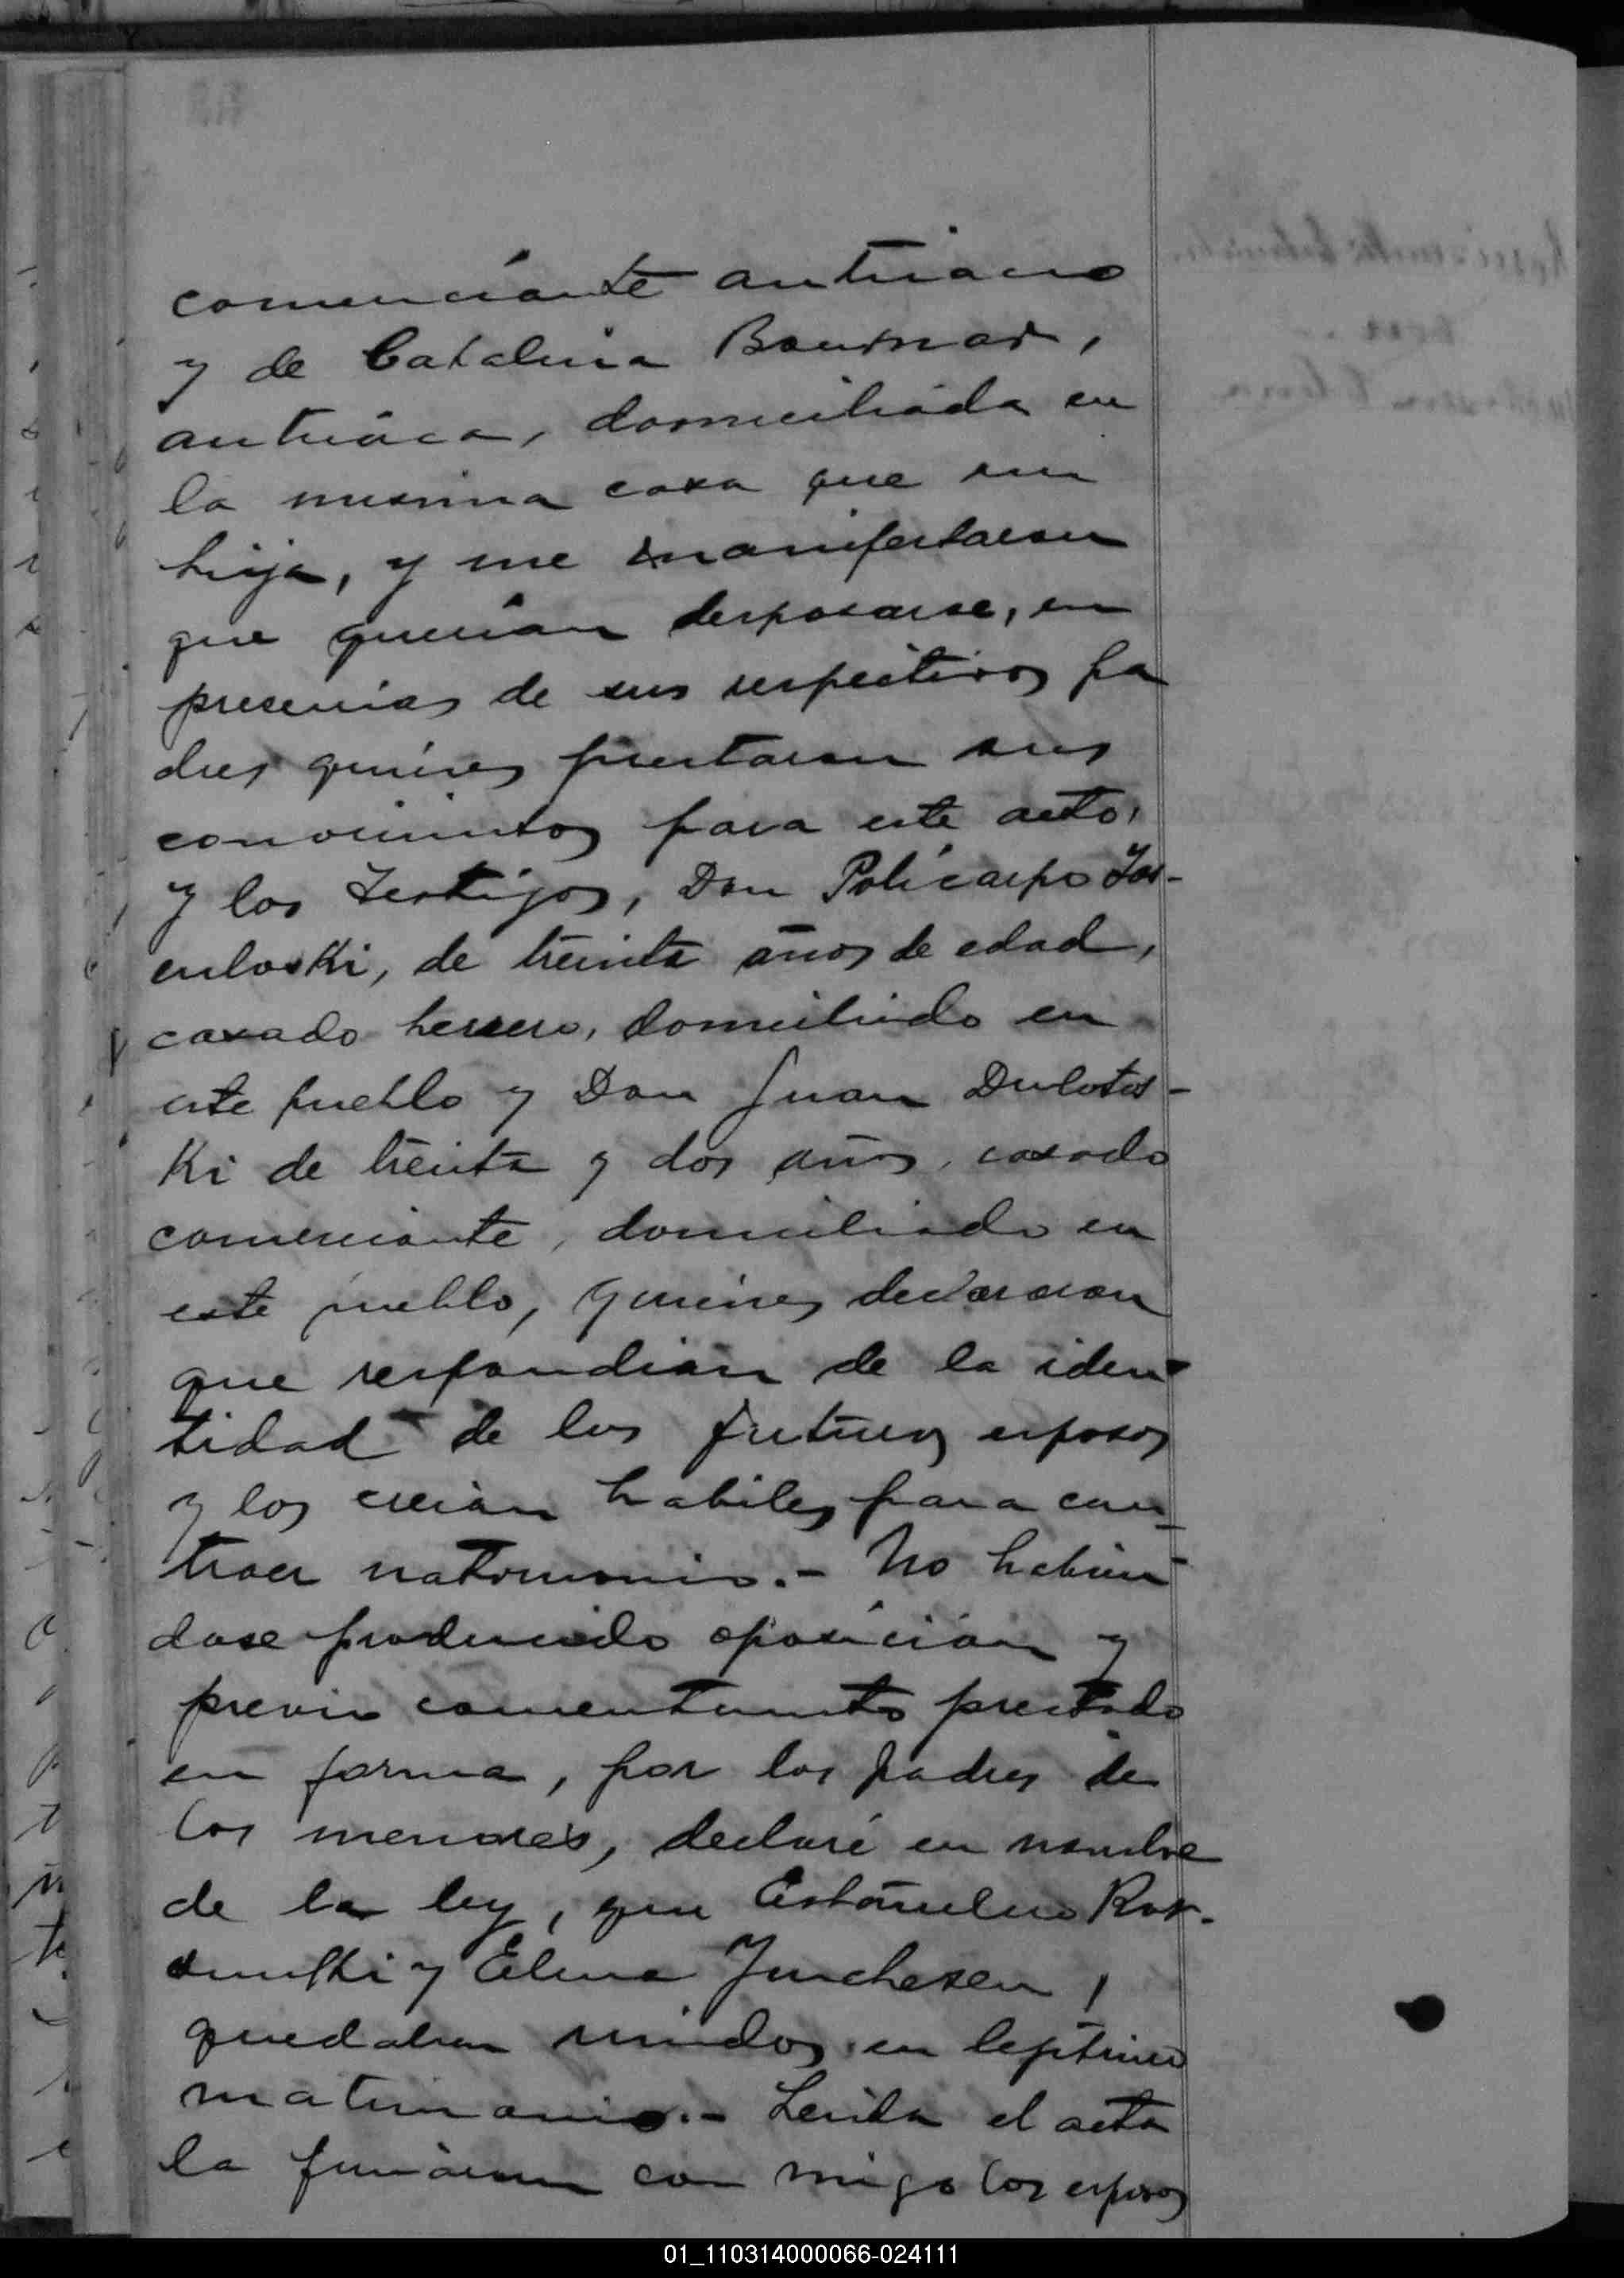 comerciante autriaco
y de Catalina Bournad,
autriáca, domiciliáda en
la misma casa que su
hija, y me manifestaron
que querían desposarse, en
presencias de sus respectivos pa
dres quiénes prestaron sus
para este acto,
y los testigos, Don Policarpo Jas-
enloski, de treinta años de edad,
casado herrero, domiciliado en
este pueblo y Don Juan Dulotos-
Ki de treinta y dos años, casado
comerciante, domiciliado en
este pueblo, quiénes declararon
que respondian de la iden-
tidad de los futuros esposos
y los creían habiles para con-
traer matrimonio.- No habien-
dose producido oposición y
previo consentimiento prestado
en forma, por los padres de
los menores, declaré en nombre
de la ley, que
y Elena Jurchesen,
quedaban unidos en legítimo
matrimonio.- Leída el acta
la firmáron con migo los esposos
01_110314000066-024111